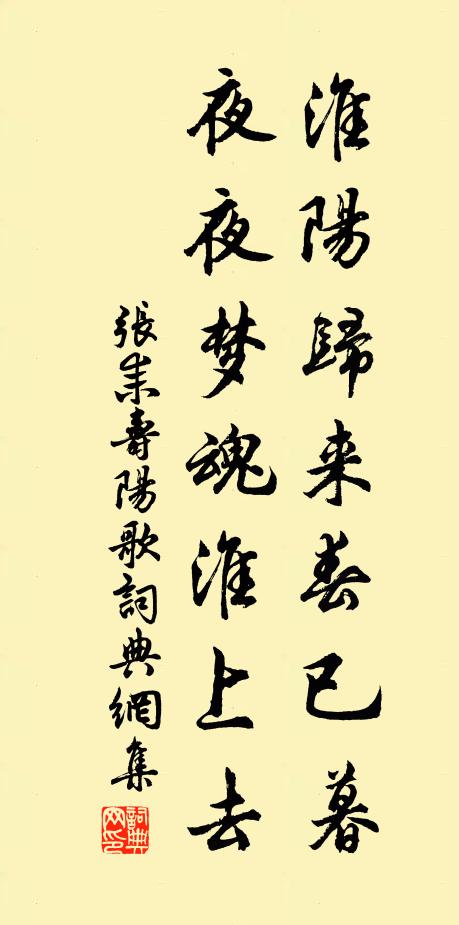 淮陽歸来春已暮
夜夜梦魂淮上去
張耒壽陽歌詞典網集
詞典
网印